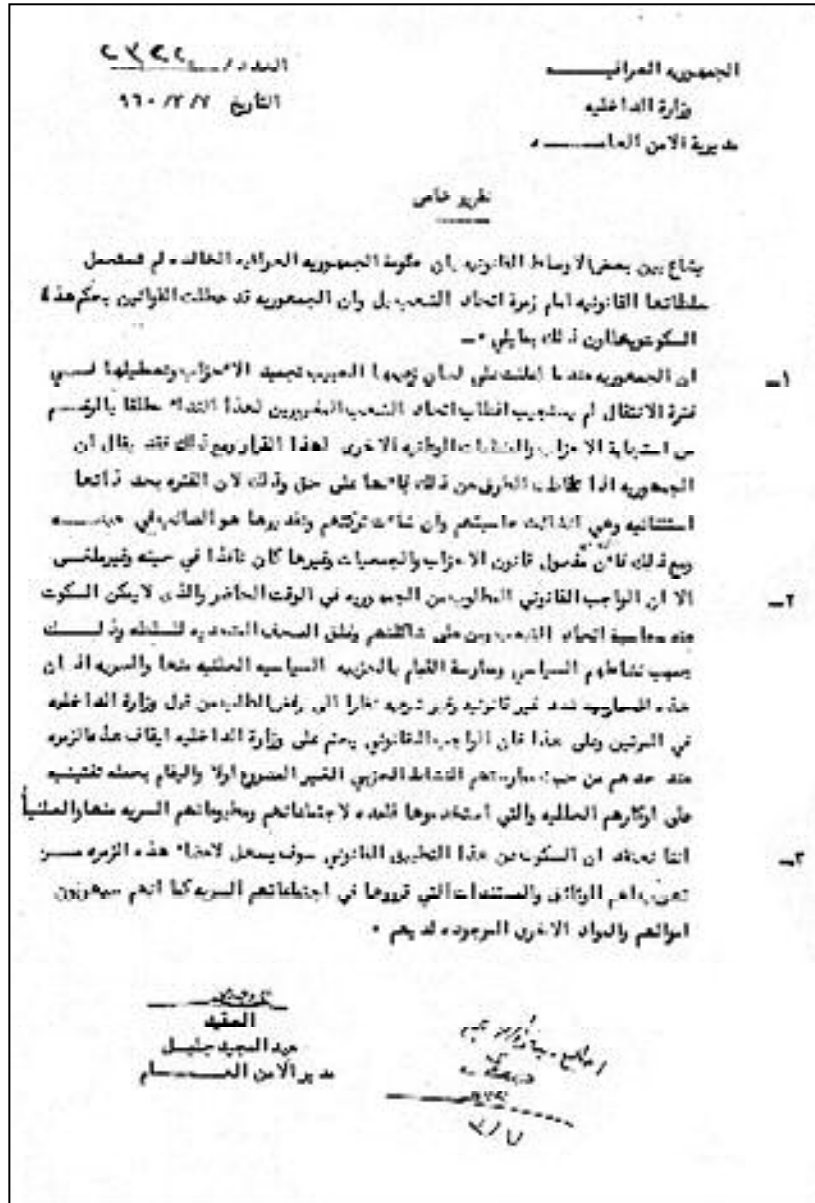 الجمهوريه العراقيـــــه
وزارة الداخليه
مديرية الامن العامـــــه
العدد/
التاريخ ٩٦٠/٣/٧
تقرير خاص
يشاع بين بعض الاوساط القانونيه بان حكومة الجمهوريه العراقيه الخالده لم تستعمل
سلطاتها القانونيه امام زمرة اتحاد الشعب بل وان الجمهوريه قد عطلت القوانين بحكم هذا
السكوت ويعللون ذلك بمايلي •ـ
١ـ ان الجمهوريه عندما اعلنت على لسان زعيمها الحبيب تجميد الاحزاب وتعطيلها فــي
فترة الانتقال لم يستجيب اقطاب اتحاد الشعب المغرورين لهذا النداء مطلقا بالرغــم
من استجابة الاحزاب والمنظمات الوطنيه الاخرى لهذا القرار ومع ذلك فقد يقال ان
الجمهوريه اذا الطرف عن ذلك على حق وذلك لان الفتره بحد ذاتها
استثنائيه وهي ان شائت حاسبتهم وان شائت تركتهم وتقديرها هو الصائب في حينـــــه
ومع ذلك فان مفعول قانون الاحزاب والجمعيات وغيرها كان نافذا في حينه وغير ملغــى
٢ـ الا ان الواجب القانوني المطلوب من الجمهوريه في الوقت الحاضر والذى لايمكن السكوت
عنه محاسبة اتحاد الشعب ومن على شاكلتهم وغلق الصحف المتحديه للسلطه وذلــــك
بسبب نشاطهم السياسي وممارسة القيام بالحزبيه السياسيه العلنيه منها والسريه اذ ان
هذه تعد غير قانونيه وغير شرعيه نظرا الى رفض الطلب من قبل وزارة الداخليه
في المرتين وعلى هذا فان الواجب القانوني يحتم على وزارة الداخليه ايقاف هذه الزمره
عند حدهم من حيث ممارستهم النشاط الحزبي الغير المشروع اولا والقيام بحمله تفتيشيه
على اوكارهم والتي استخدموها قاعده لاجتماعاتهم ومطبوعاتهم السريه منها والعلنيه
٣ـ اننا نعتقد ان السكوت عن هذا التطبيق القانوني سوف يسهل لاعضاء هذه الزمره مــن
تهريب اهم الوثائق والمستندات التي قرروها في اجتماعاتهم السريه كما انهم سيهربون
اموالهم والمواد الاخرى الموجوده لديهم •
العقيد
عبد المجيد جليـل
مدير الامن العـــــام